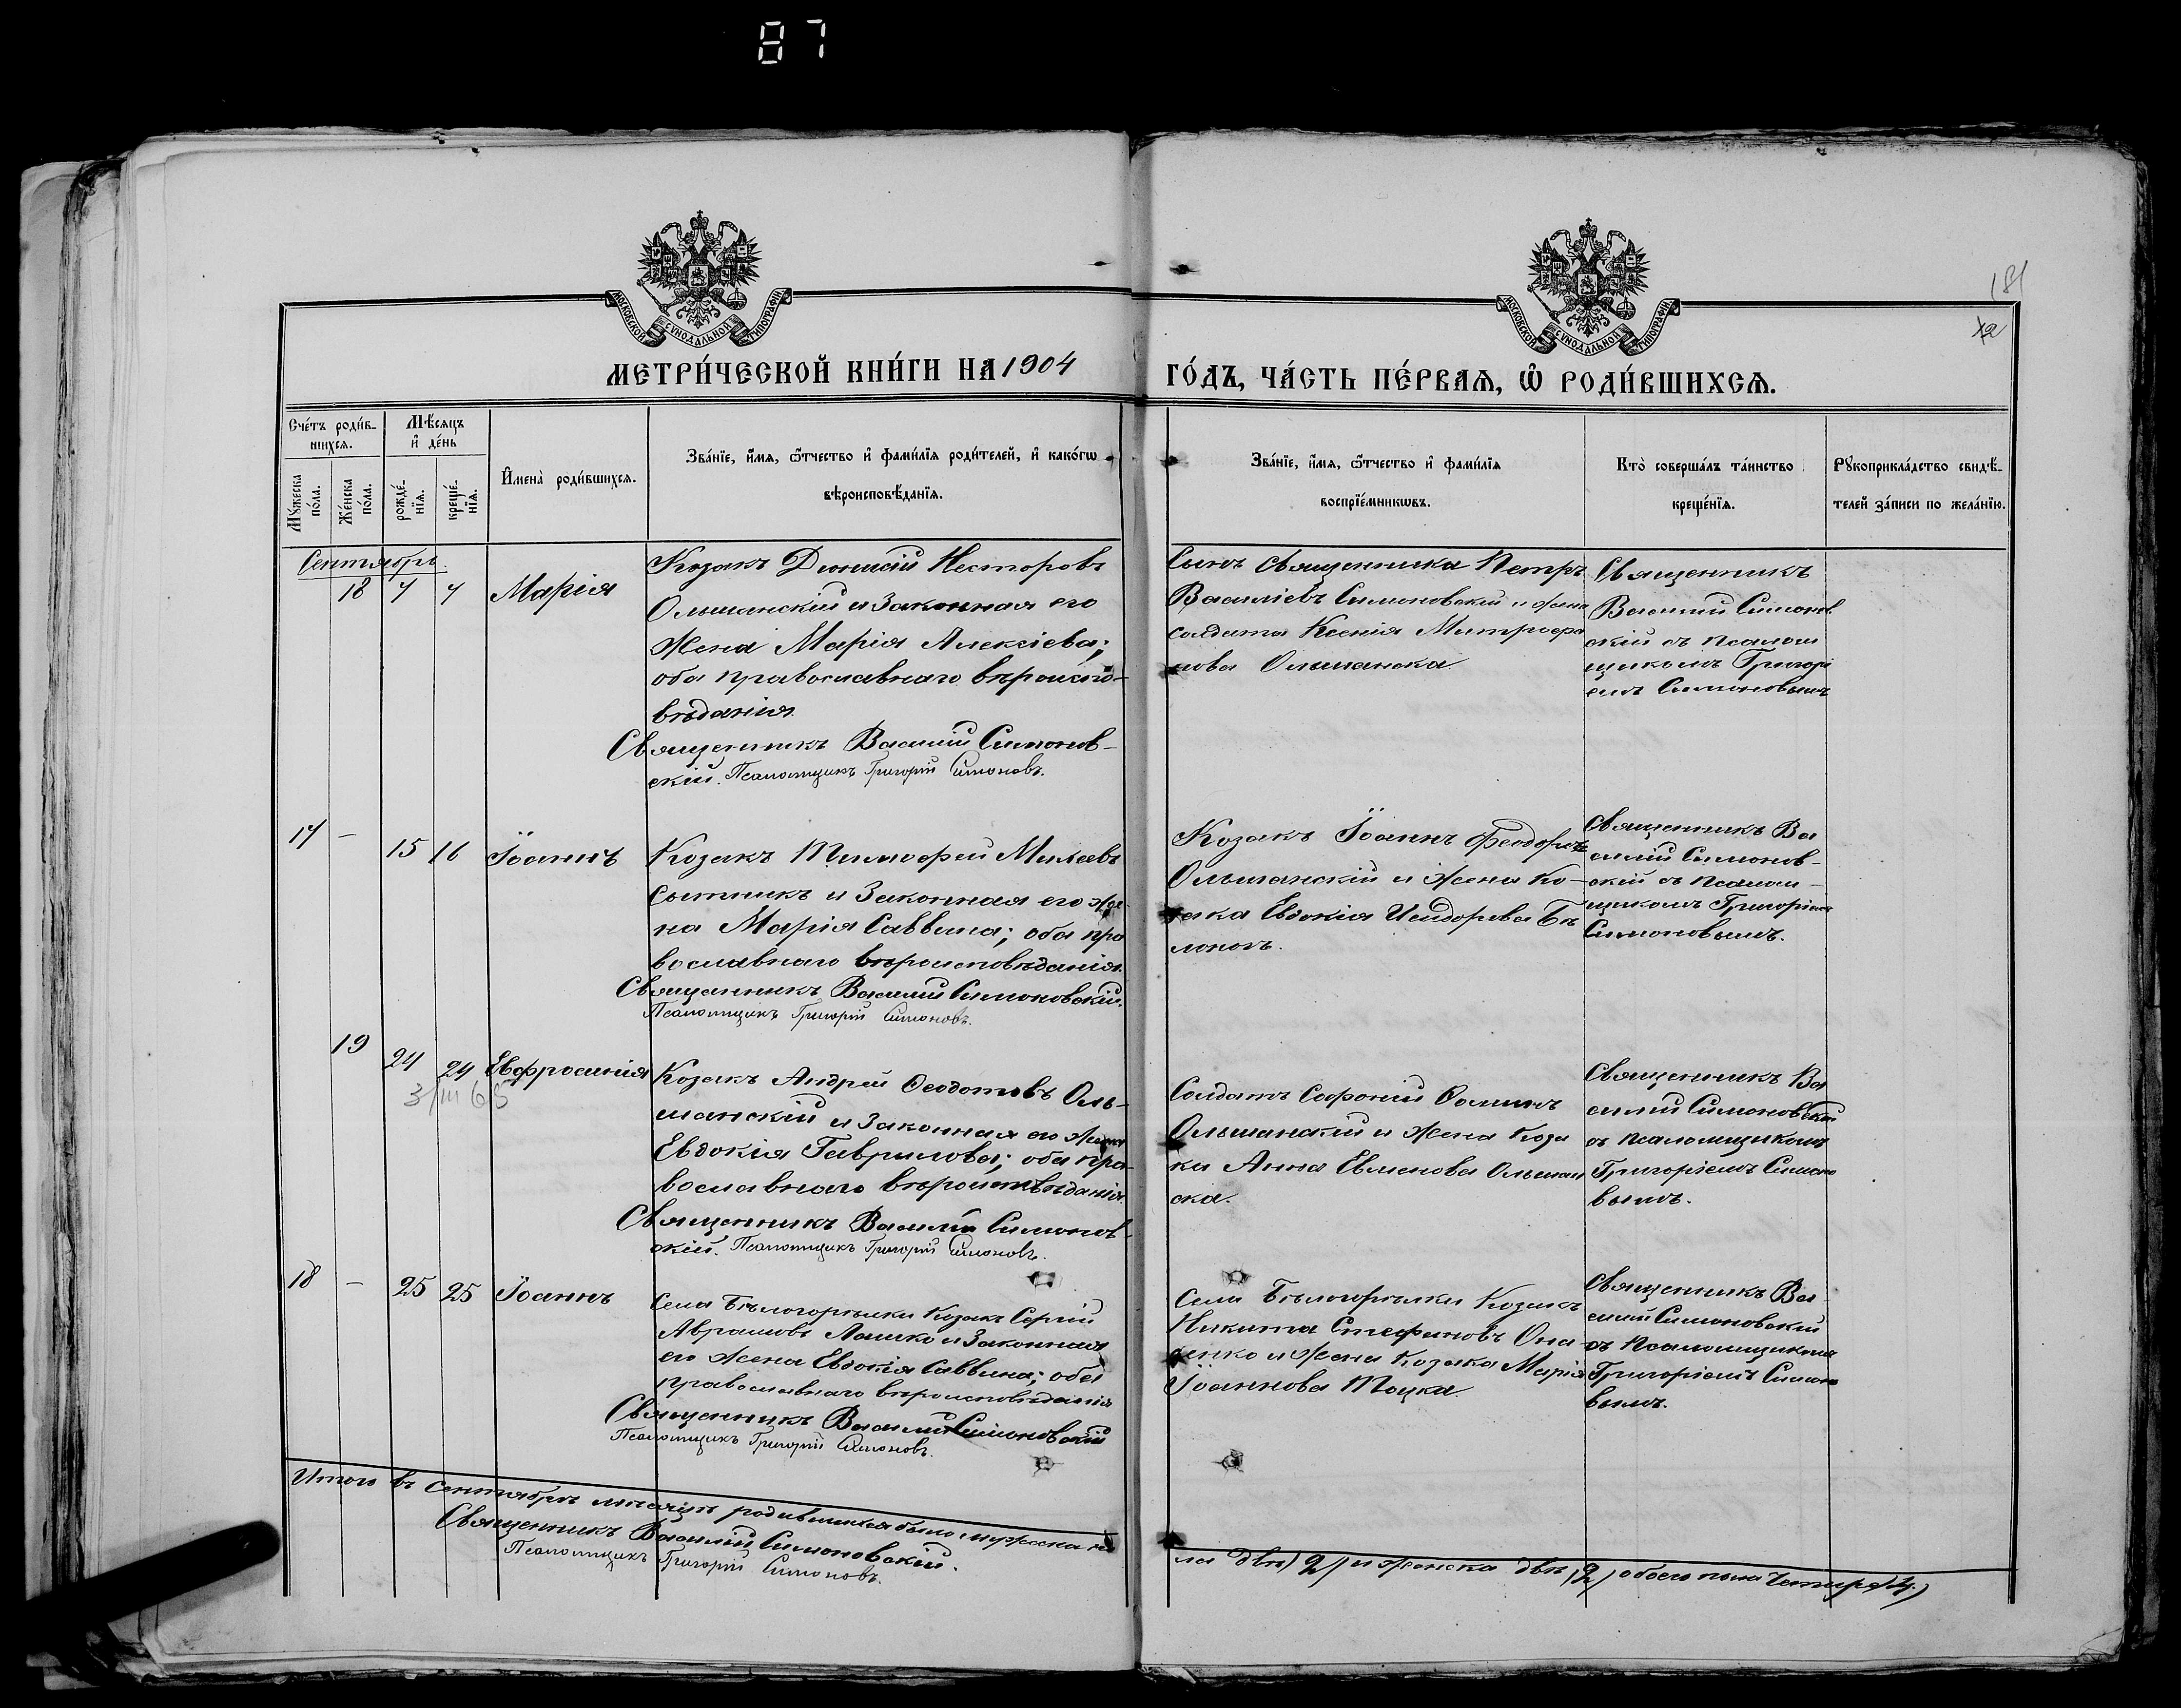 87
МОСКОВСКОЙ СѴНОДАЛЬНОЙ ТИПОГРАФІИ
МОСКОВСКОЙ СѴНОДАЛЬНОЙ ТИПОГРАФІИ
181
МЕТРИ́ЧЕСКОЙ КНИ́ГИ НА 1904
ГО́ДЪ, ЧА́СТЬ ПЕ́РВАѦ, Ѡ҆ РОДИ́ВШИХСѦ.
Сче́тъ роди́в-
шихсѧ.
Мѣ́сѧцъ
и҆ де́нь
Мꙋ́жеска
по́ла.
Же́нска
по́ла.
рожде́-
нїѧ.
креще́-
нїѧ.
И҆мена̀ роди́вшихсѧ.
Зва́нїе, и҆́мѧ, ѻ҆́тчество и҆ фами́лїѧ роди́телей, и҆ како́гѡ
вѣроисповѣ́данїѧ.
Зва́нїе, и҆́мѧ, ѻ҆́тчество и҆ фами́лїѧ
воспрїе́мникѡвъ.
Кто̀ соверша́лъ та́инство
креще́нїѧ.
Рꙋкоприкла́дство свидѣ́-
телей за́писи по жела́нїю.
Сентябрь.
18 7 7 Марія
Козакъ Діонисій Несторовъ
Ольшанскій и законная его
жена Марія Алексіева;
оба православнаго вѣроиспо-
вѣданія.
Священникъ Василій Симонов-
скій. Псаломщикъ Григорій Симоновъ.
Сынъ Священника Петръ
Василіевъ Симоновскій и жена
солдата Ксенія Митрофа
нова Ольшанска.
Священникъ
Василій Симонов
скій съ псалом
щикомъ Григорі
емъ Симоновымъ
17 – 15 16 Іоаннъ
Козакъ Тимофей Михеевъ
Сытникъ и законная его же-
на Марія Саввина; оба пра
вославнаго вѣроисповѣданія.
Священникъ Василій Симоновскій.
Псаломщикъ Григорій Симоновъ.
Козакъ Іоаннъ Феодоровъ
Ольшанскій и жена ко-
зака Евдокія Исидорова Бѣ
локонь.
Священникъ Ва
силій Симонов-
скій съ псалом-
щикомъ Григоріемъ
Симоновымъ.
19 24 24 Евфросинія
3/III 65
Козакъ Андрей Феодотовъ Оль-
шанскій и законная его жена
Евдокія Гаврилова; оба пра-
вославнаго вѣроисповѣданія.
Священникъ Василій Симонов-
скій. Псаломщикъ Григорій Симоновъ.
Солдатъ Софоній Фоминъ
Ольшанскій и жена коза
ка Анна Евменова Ольшан
ска.
Священникъ Ва
силій Симоновскій
съ псаломщикомъ
Григоріемъ Симоно
вымъ.
18 – 25 25 Іоаннъ
Села Бѣлогорѣлки Козакъ Сергій
Аврамовъ Ляшко и законная
его жена Евдокія Саввина; оба
православнаго вѣроисповѣданія
Священникъ Василій Симоновскій
Псаломщикъ Григорій Симоновъ.
Села Бѣлогорѣлки Козакъ
Никита Стефановъ Она
ценко и жена Козака Марія
Іоаннова Тоцка.
Священникъ Ва
силій Симоновскій
съ псаломщикомъ
Григоріемъ Симоно
вымъ.
Итого въ Сентябрѣ мѣсяцѣ родившихся было: мужеска по
ла два) 2) и женска двѣ (2) обоего пола четыре (4.)
Священникъ Василій Симоновскій.
Псаломщикъ Григорій Симоновъ.